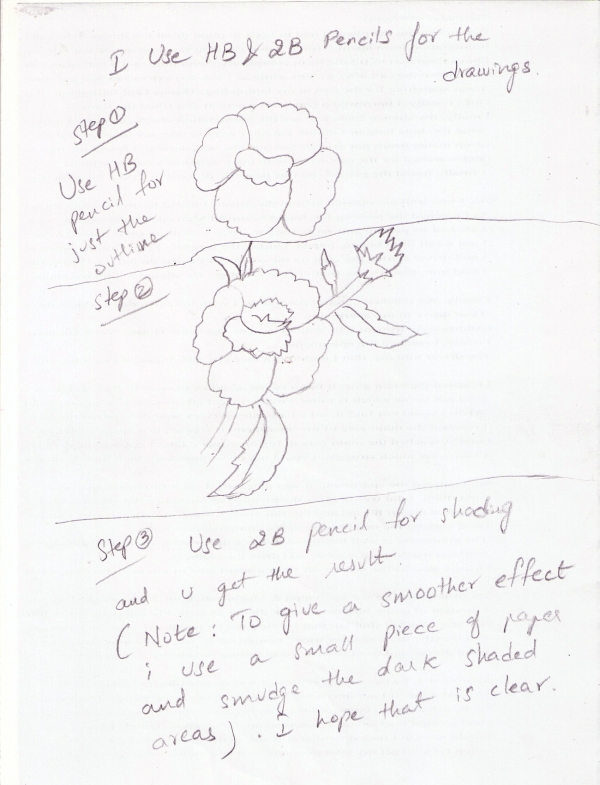 I Use HB & 2B Pencils for the
drawings.
Step ①
Use HB
pencil for
just the
outline
Step ②
Step ③ Use 2B pencil for shading
and u get the result.
(Note: To give a smoother effect
i use a small piece of paper
and smudge the dark shaded
areas). I hope that is clear.